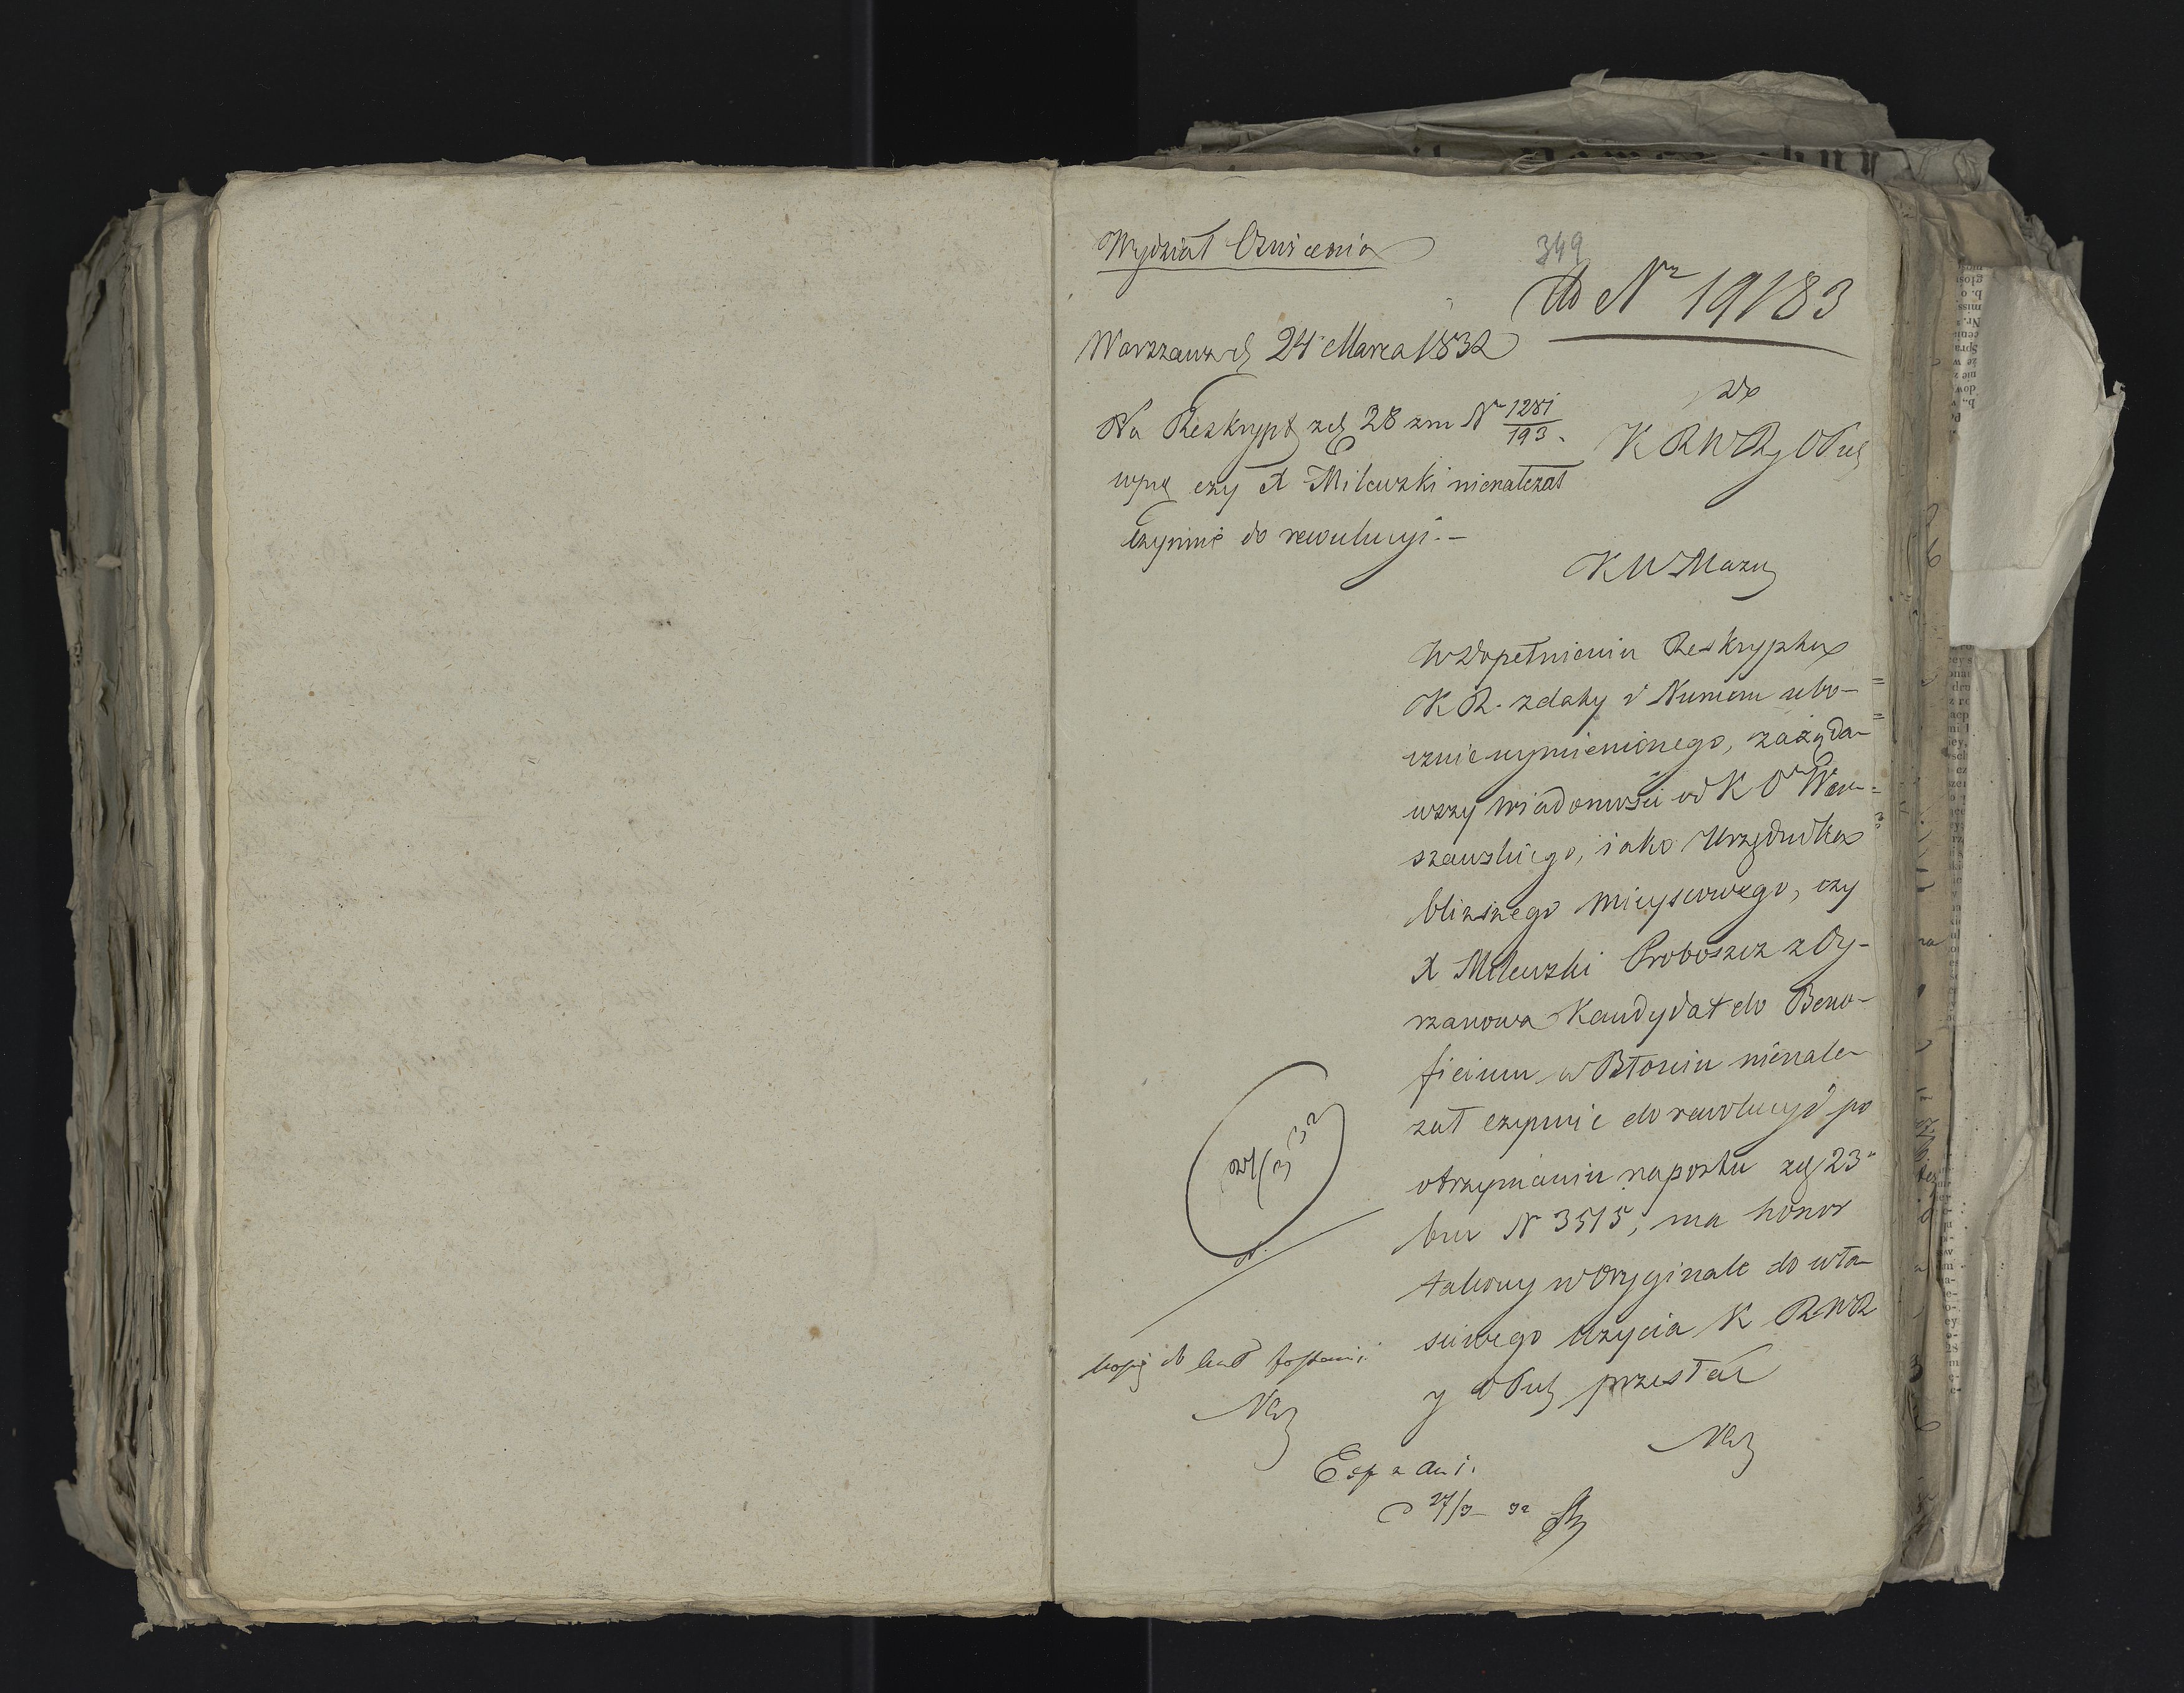 Wydział Oświcenia
349
ad Nr 19183
Warszawa d. 24 Marca 1832
Do
Na Reskrypt zd. 28 zm Nr 1281/193.
K R W R y O Pub
wprz czy X Milewski nienależał
czynnie do rewolucyi. –
K W Mazu
W dopełnieniu Reskryptu
K R. z daty i Numeru ubo-
cznie wymienionego, zażąda-
wszy wiadomości od K Ou War-
szawskiego, iako Urzędnika
bliższego mieyscowego, czy
X Milewski Proboszcz z Oy-
rzanowa Kandydat do Bene-
ficium w Błoniu nienale-
żał czynnie do rewolucyi po
otrzymaniu raportu zd. 23
bm N 3515, ma honor
takowy w Oryginale do wła-
sciwego użycia K R W R
y O Pub przesłać
24/3 32
kopię do akt
Exp
d 27/3 – 32